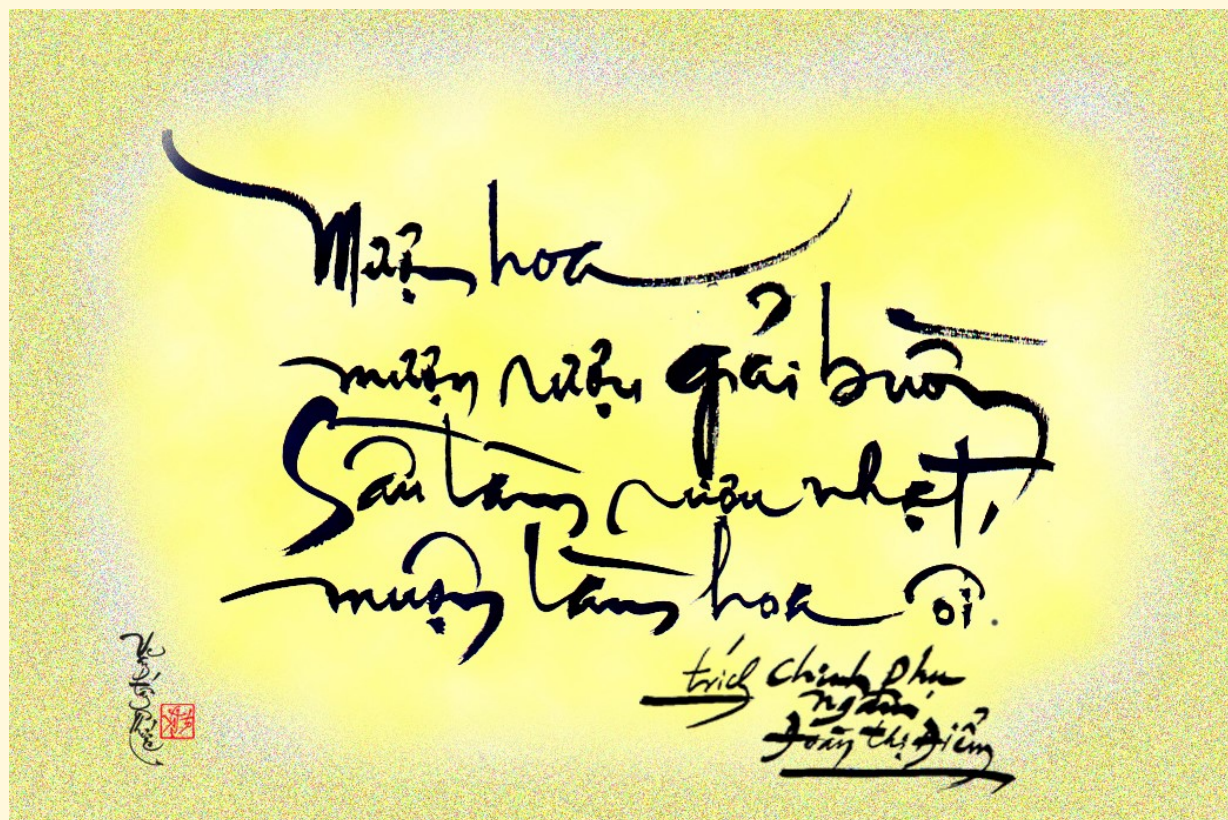 Mượn hoa
mượn rượu giải buồn
Sầu làm rượu nhạt,
muộn làm hoa ôi.
trích Chinh phụ
ngâm
Đoàn thị Điểm